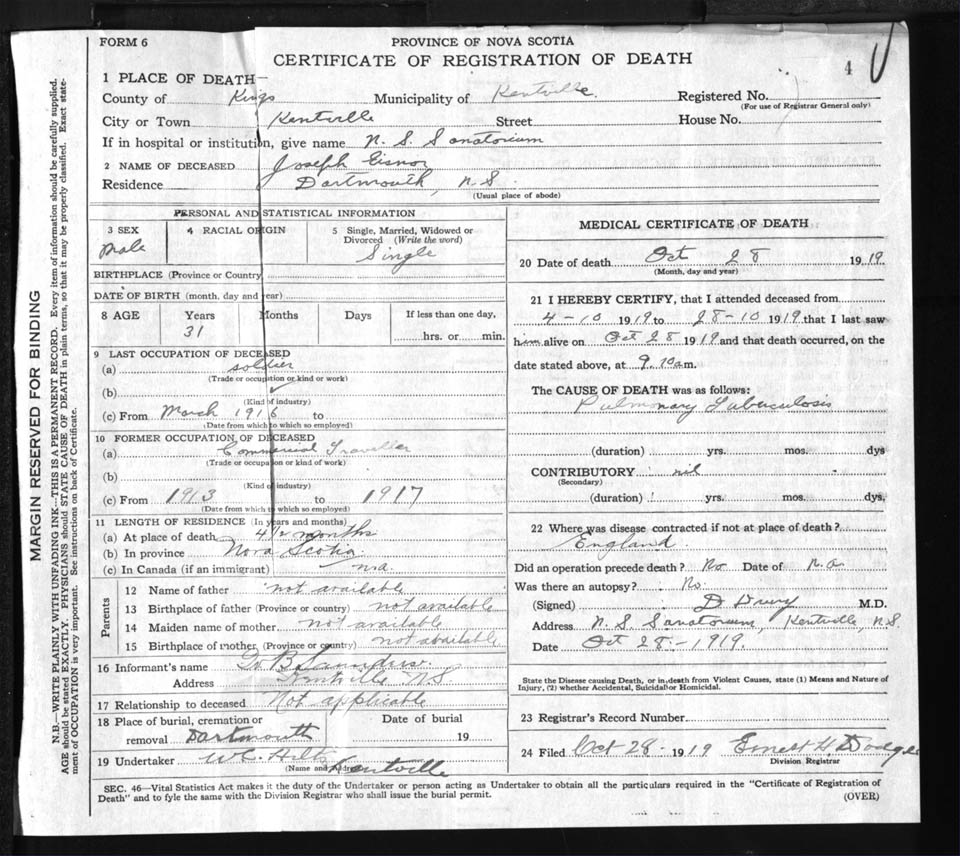 FORM 6
PROVINCE OF NOVA SCOTIA
CERTIFICATE OF REGISTRATION OF DEATH
4
1 PLACE OF DEATH—
County of Kings Municipality of Kentville. Registered No.
(For use of Registrar General only)
City or Town Kentville Street House No.
If in hospital or institution, give name N. S. Sanatorium
2 NAME OF DECEASED Joseph Eisnor
Residence Dartmouth, N.S.
(Usual place of abode)
PERSONAL AND STATISTICAL INFORMATION
3 SEX 4 RACIAL ORIGIN 5 Single, Married, Widowed or Divorced (Write the word)
Male Single
BIRTHPLACE (Province or Country)
DATE OF BIRTH (month, day and year)
8 AGE Years Months Days If less than one day,
31 hrs. or min.
9 LAST OCCUPATION OF DECEASED
(a) soldier
(Trade or occupation or kind or work)
(b)
(Kind of industry)
(c) From March 1916 to
(Date from which to which so employed)
10 FORMER OCCUPATION OF DECEASED
(a) Commercial Traveller
(Trade or occupation or kind of work)
(b)
(Kind of industry)
(c) From 1913 to 1917
(Date from which to which so employed)
11 LENGTH OF RESIDENCE (In years and months)
(a) At place of death 4 1/2 months
(b) In province Nova Scotia.
(c) In Canada (if an immigrant) n.a.
Parents
12 Name of father not available
13 Birthplace of father (Province or country) not available
14 Maiden name of mother not available
15 Birthplace of mother (Province or country) not available
16 Informant's name B Saunders.
Address Kentville N.S.
17 Relationship to deceased Not applicable
18 Place of burial, cremation or removal Dartmouth
Date of burial 19
19 Undertaker W.C. Hiltz Kentville
(Name and Address)
MEDICAL CERTIFICATE OF DEATH
20 Date of death Oct 28 1919
(Month, day and year)
21 I HEREBY CERTIFY, that I attended deceased from
4-10 1919 to 28-10 1919 that I last saw
him alive on Oct 28 1919 and that death occurred, on the
date stated above, at 9.10 a m.
The CAUSE OF DEATH was as follows:
Pulmonary Tuberculosis
(duration) yrs. mos. dys
CONTRIBUTORY nil
(Secondary)
(duration) yrs. mos. dys.
22 Where was disease contracted if not at place of death?
England.
Did an operation precede death? No Date of N.a.
Was there an autopsy? No.
(Signed) D Drury M.D.
Address N. S. Sanatorium, Kentville, N.S.
Date Oct 28-1919.
State the Disease causing Death, or in death from Violent Causes, state (1) Means and Nature of Injury, (2) whether Accidental, Suicidal or Homicidal.
23 Registrar's Record Number
24 Filed Oct 28-1919 Ernest H. Dodge
Division Registrar
SEC. 46—Vital Statistics Act makes it the duty of the Undertaker or person acting as Undertaker to obtain all the particulars required in the "Certificate of Registration of
Death" and to fyle the same with the Division Registrar who shall issue the burial permit. (OVER)
MARGIN RESERVED FOR BINDING
N.B.—WRITE PLAINLY WITH UNFADING INK—THIS IS A PERMANENT RECORD. Every item of information should be carefully supplied.
AGE should be stated EXACTLY. PHYSICIANS should STATE CAUSE OF DEATH in plain terms, so that it may be properly classified. Exact statement of OCCUPATION is very important. See instructions on back of Certificate.